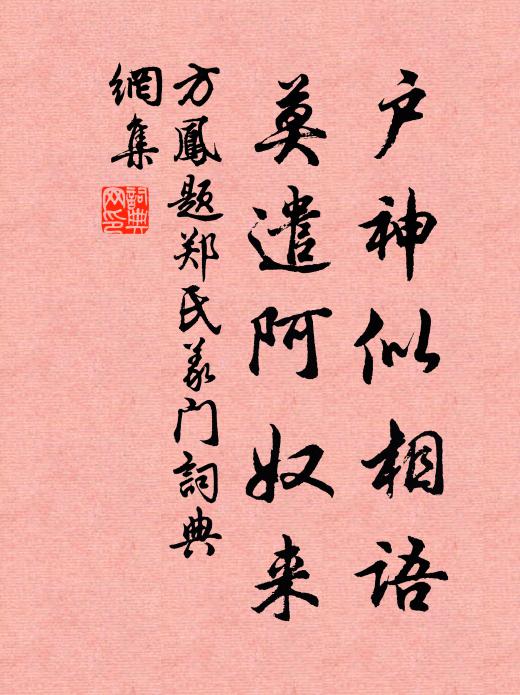 户神似相语
莫遣阿奴来
方鳳题郑氏义门詞典
網集
詞典網印